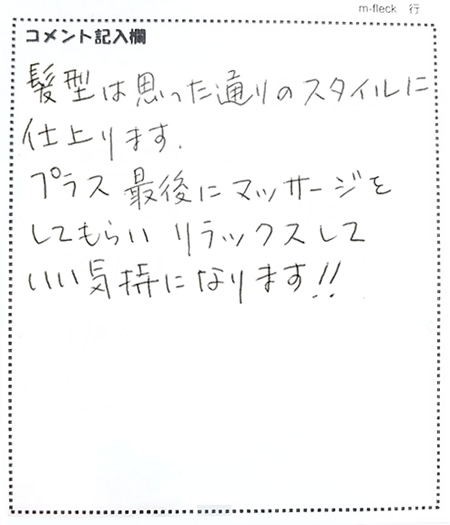 m-fleck 行
コメント記入欄
髪型は思った通りのスタイルに
仕上ります.
プラス 最後にマッサージを
してもらい リラックスして
いい気持になります!!